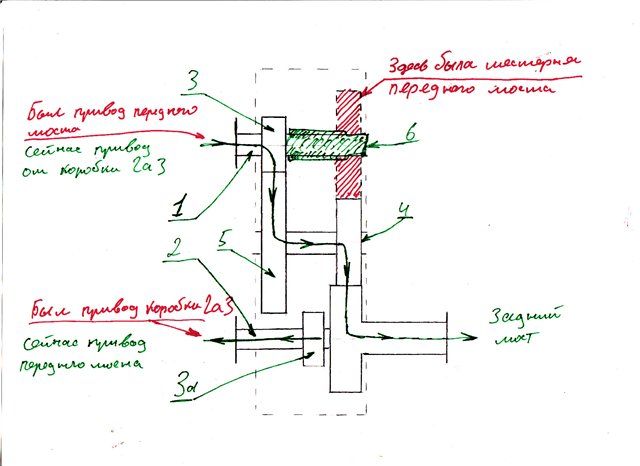 3
Здесь была шестерня
переднего моста
Был привод переднего
моста
Сейчас привод
от коробки Газ
6
1
2
5
4
Был привод коробки Газ
Сейчас привод
3а
Задний
мост